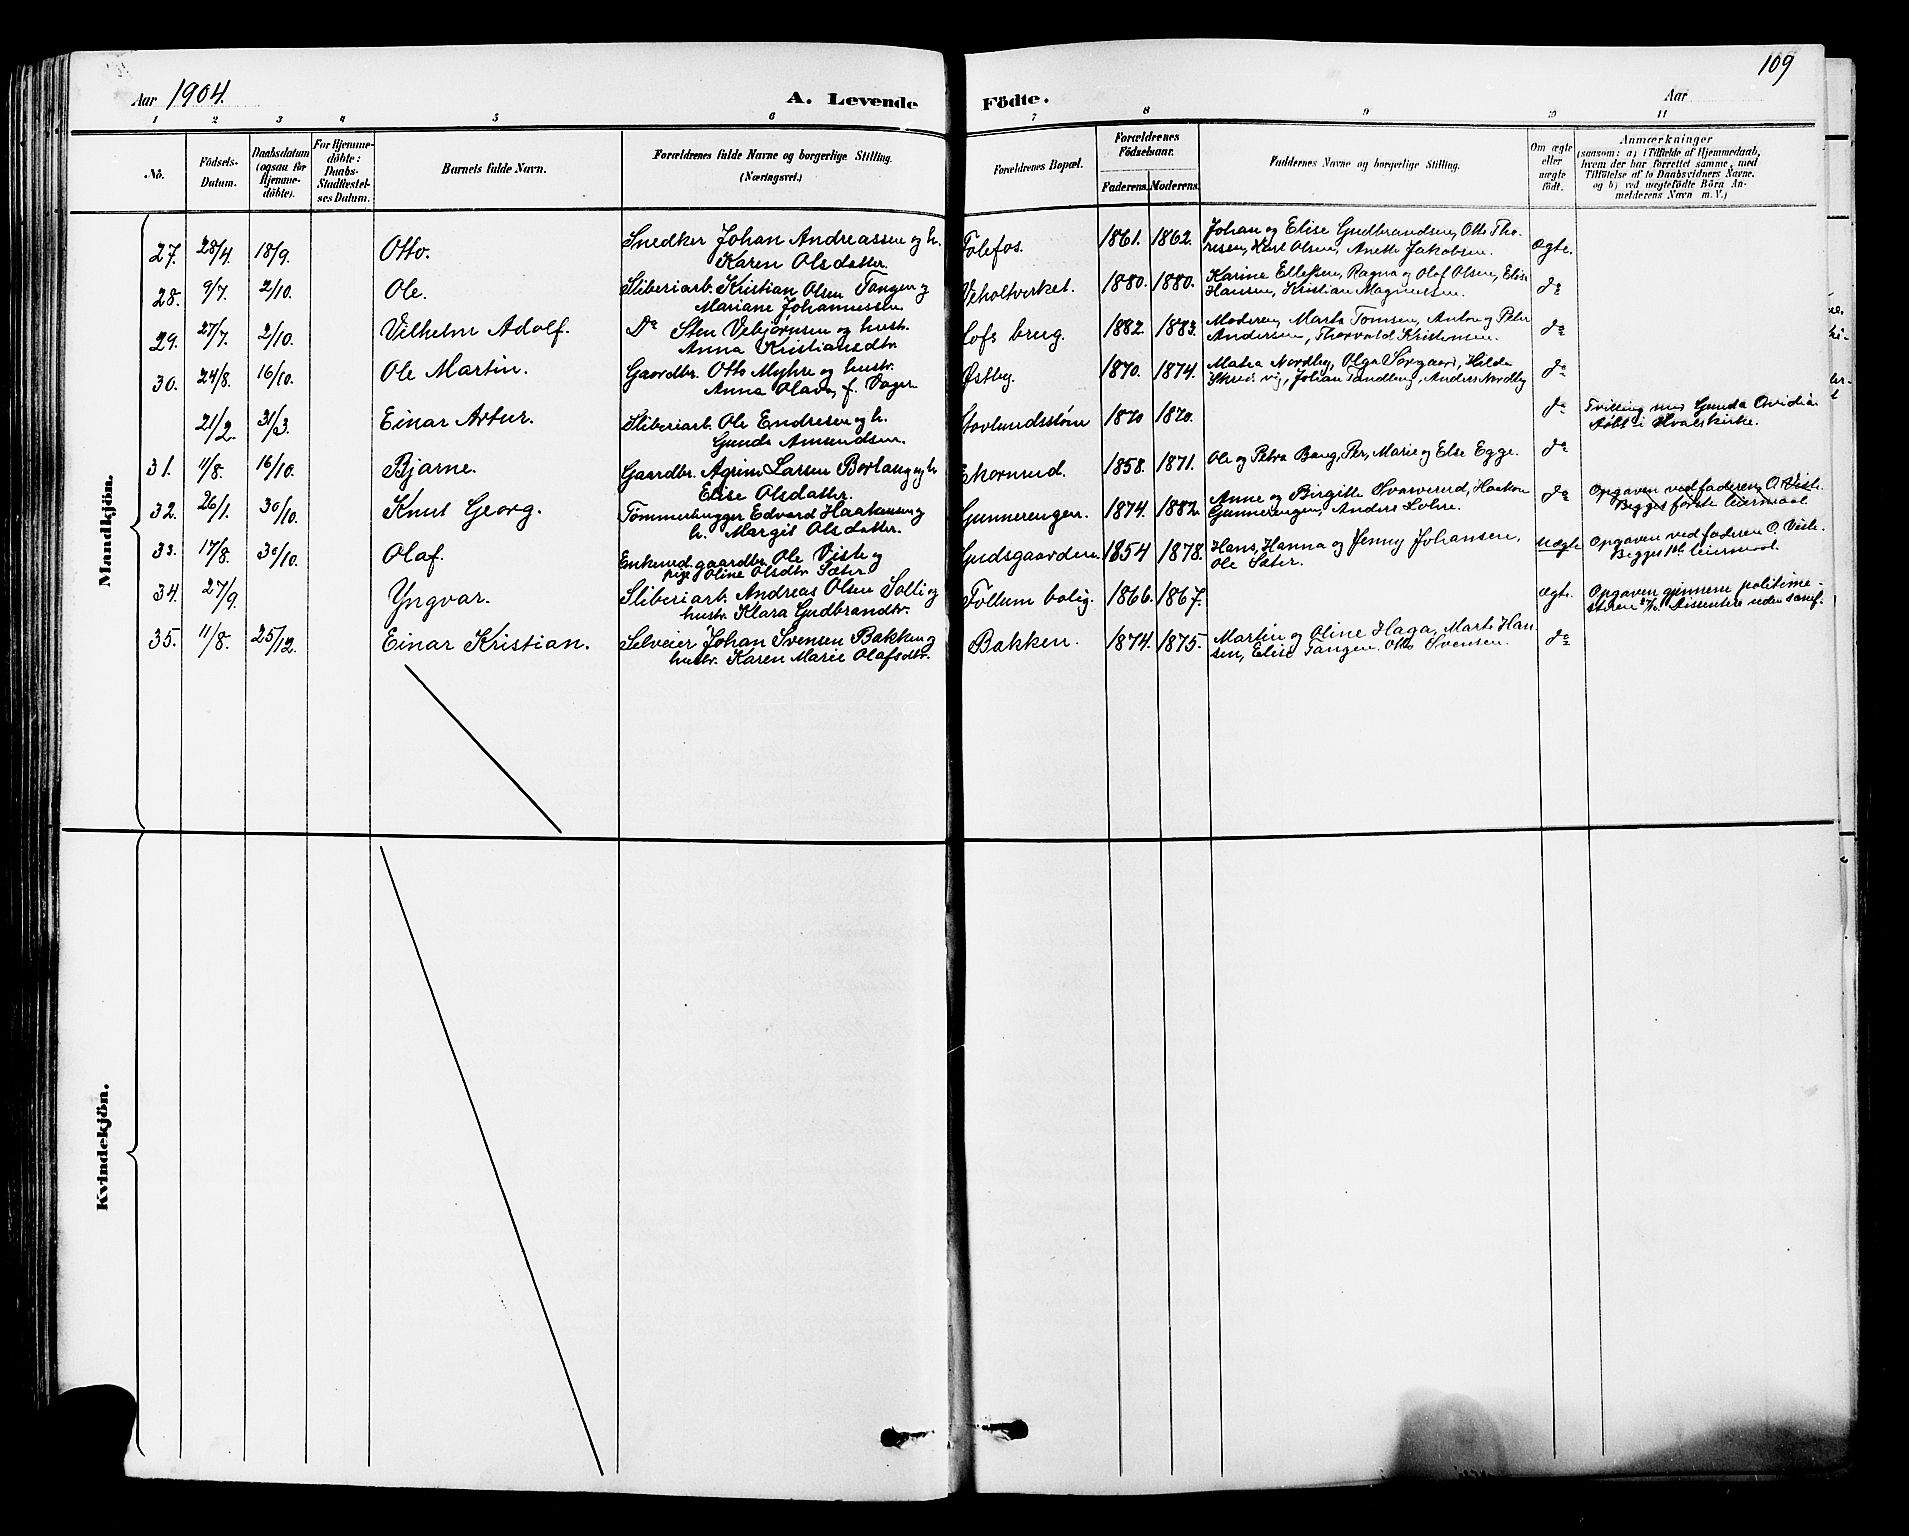 109
Aar 1904.
A. Levende Födte.
Aar
1 2 3 4 5 6 7 8 9 10 11
No.
Födsels-
Datum.
Daabsdatum
(ogsaa for
Hjemme-
döbte).
For Hjemme-
döbte:
Daabs-
Stadfæstel-
ses Datum.
Barnets fulde Navn.
Forældrenes fulde Navne og borgerlige Stilling.
(Næringsvei.)
Forældrenes Bopæl.
Forældrenes
Födselsaar.
Faderens. Moderens.
Faddernes Navne og borgerlige Stilling.
Om ægte
eller
uægte
født.
Anmærkninger
(saasom: a) i Tilfælde af Hjemmedaab,
hvem der har forrettet samme, med
Tilföielse af to Daabsvidners Navne,
og b) ved uægtefödte Börn An-
melderens Navn m. V.)
Mandkjön.
27. 28/4 18/9. Otto. Snedker Johan Andreassen og h.
Karen Olsdatter. Følefos. 1861. 1862. Johan og Elise Gudbrandsen, Otto Tho-
resen, Karl Olsen, Anette Jakobsen. ægte.
28. 9/7. 2/10. Ole. Sliberiarb. Kristian Olsen Tangen og
Mariane Johannessen Veholtverket. 1880. 1880. Karine Ellefsen, Ragna og Olaf Olsen, Elise
Hansen, Kristian Magnussen. do
29. 27/7. 2/10. Vilhelm Adolf. Do Sten Vebjørnsen og hustr.
Anna Kristiansdtr. Hofs brug. 1882. 1883. Moderen, Marta Tomsen, Anton og Peter
Andersen, Thorvald Kristensen. do
30. 24/8. 16/10. Ole Martin. Gaardbr. Otto Myhre og hustr.
Anna Olava, f. Vager Østby. 1870. 1874. Matea Nordby, Olga Sørgaard, Hilda
Johan Tandberg, Anders Nordby do
21/2. 31/3. Einar Artur. Sliberiarb. Ole Endresen og h.
Gunda Amundsen. 1870 1870. do Tvilling med Gunda Ovidia
døbt i Hvalskirke.
31. 11/8. 16/10. Bjarne. Gaardbr. Agrim Larsen Borlaug og h
Elise Olsdatter. Ekornrud. 1858. 1871. Ole og Petra Bang, Per, Marie og Else Egge. do
32. 26/1. 30/10. Knut Georg. Tømmerhugger Edvard Haakensen og
h. Margit Olsdatter. Gunnerengen. 1874. 1882. Anne og Birgitte Svarverud, Haakon
Gunnerengen, Anders Lohre. do Opgaven ved faderen O. Viste.
Begges første leiermaal
33. 17/8. 30/10. Olaf. Enkemd gaardbr. Ole Viste og
pige Oline Olsdtr. Sæter. Gudsgaarden. 1854 1878. Hans, Hanna og Jenny Johansen,
Ole Sæter. Uægte Opgaven ved faderen O Viste.
Begges 1ste leiermaal.
34. 27/9. Yngvar. Sliberiarb. Andreas Olsen Solli og
hustr. Klara Gudbrandtr. Follum bolig. 1866. 1867. ægte. Opgaven gjennem politime-
steren Dissentere uden samf.
35. 11/8. 25/12. Einar Kristian. Selveier Johan Svensen Bakken og
hustr. Karen Marie Olafsdtr. Bakken. 1874. 1875. Martin og Oline Haga, Marte Han-
sen, Elise Tangen. Otto Svensen. do
Kvindekjön.